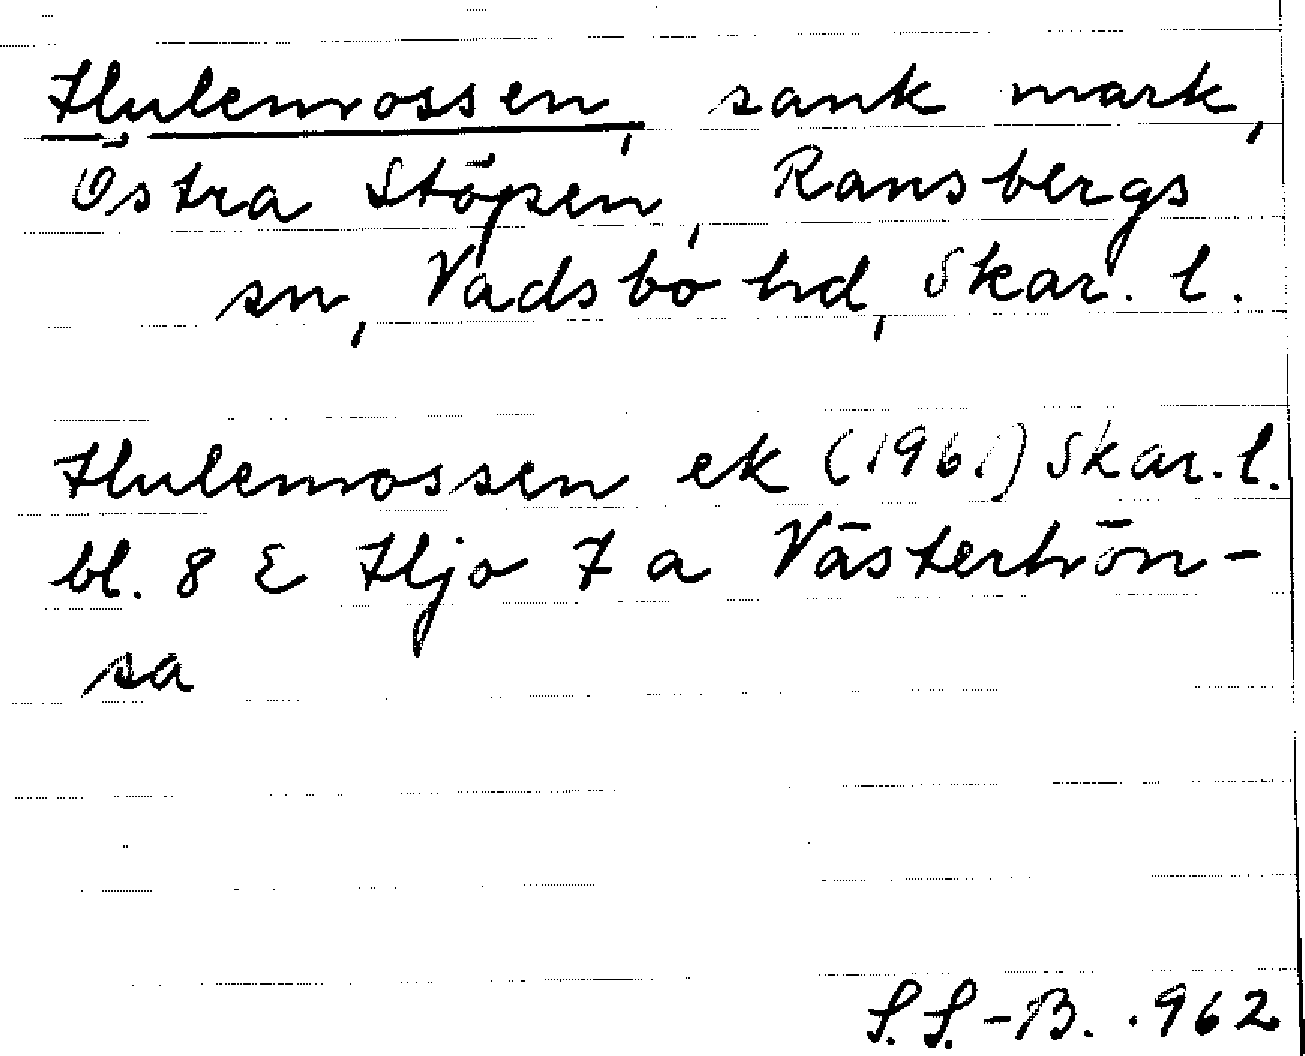 Hulemossen, sank mark,
Östra Stöpen, Ransbergs
sn, Vadsbo hd, Skar. l.
Hulemossen ek (1961) Skar. l.
bl. 8 E Hjo 7 a Västerhön-
sa
S.S.-B. .962